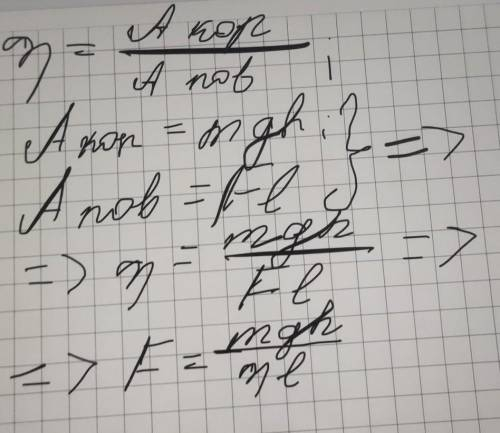 η = А кор / А пов ;
А кор = mgh ; } =>
А пов = F l
=> η = mgh / F l =>
=> F = mgh / η l